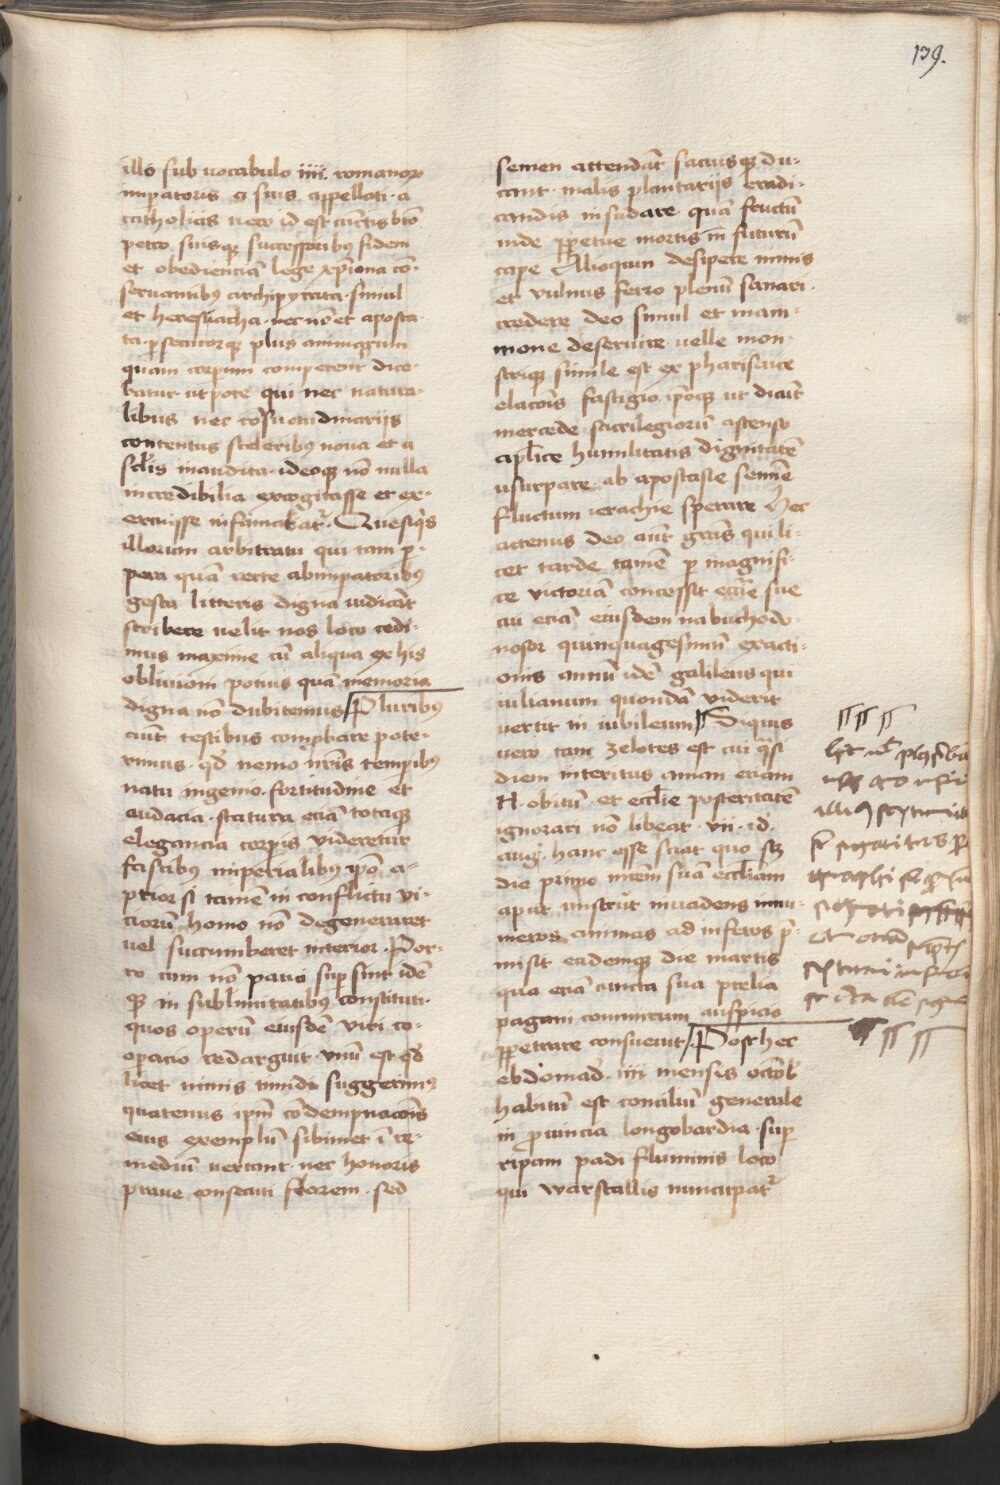 139.
illo sub vocabulo iiii. romanor
impatoris a suis appellati · a
catholicis vero id est cunctis bto
petro suisq successoribus fidem
et obedienciā lege xpiana cō-
servantibus archipyrata · simul
et heresiarcha · nec nō et aposta-
ta psecutorq plus animarum
quam corpum competent dice-
batur · utpote qui nec natura-
libus nec cōsuetudinarijs
contentus sceleribus nova et a
sclis inaudita · ideoq nō nulla
incredibilia excogitasse et ex-
ercuisse infamabatr · Que siqis
illorum arbitratu qui tam p-
pera quā recte ab impatoribus
gesta litteris digna iudicāt
scribere velit nos loco cedi-
mus maxime cū aliqua ex his
oblivioni potius quā memoria
digna nō dubitemus Pluribus
aūt testibus comprobare pote-
rimus · qd nemo nris temporibus
natu ingenio · fortitudine et
audacia · statura etiā totaq
elegancia corporis videretur
fascibus imperialibus ipō a-
ptior si tamē in conflictu vi-
ciorū homo nō degeneraret
vel succumberet interior · Por-
ro cum nō pauci supsint idē
q in sublimitatibus constituti ·
quos operū eiusdē viri co-
opacio redarguit · vnū est qd
licet nimis timide suggerimus
quatenus ipm cōdempnacōis
eius exemplū sibimet ī re-
mediū vertant · nec honoris
prave consecuti florem · sed
semen attendāt sacius q du-
cant · malis plantarijs eradi-
candis insudare quā fructū
inde ppetue mortis in futurū
cape Alioquin desipere nimis
et vulnus ferro plenū sanari ·
credere deo simul et mam-
mone deservire velle mon-
strisq simile est ex pharisaice
elacōis fastigio ipōq ut dicāt
mercede sacrilegiorū ascenso
aplice humilitatis dignitatē
usurpare ab apostasie semīe
fluctum ierachie sperare Nec
actenus deo aūt grās qui li-
cet tarde tamē p magnifi-
ce victoriā concessit ecclie sue
cui etiā eiusdem nabuchodo-
nosor quinquagesimū exacti-
onis annū idē galileus qui
iulianum quondā viderit
vertit in iubileum Siquis
vero tam zelotes est cui qsi
diem interitus amari etiam
H · obitū · et ecclie posteritatē
ignorari nō libeat · vii · id
aug · hanc esse sciat quo sz
die primo intm suā eccliam
aput unstrut invadens innu-
meros animas ad inferos p-
misit eademq die martis
qua etiā cuncta sua prelia
pagani commertum auspicio
ppetrare consuevit Post hec
ebdomad · iiii mensis octob
habitū est conciliū generale
in pvincia longobardia · sup
ripam padi fluminis loco
qui warstallis nuncupatr